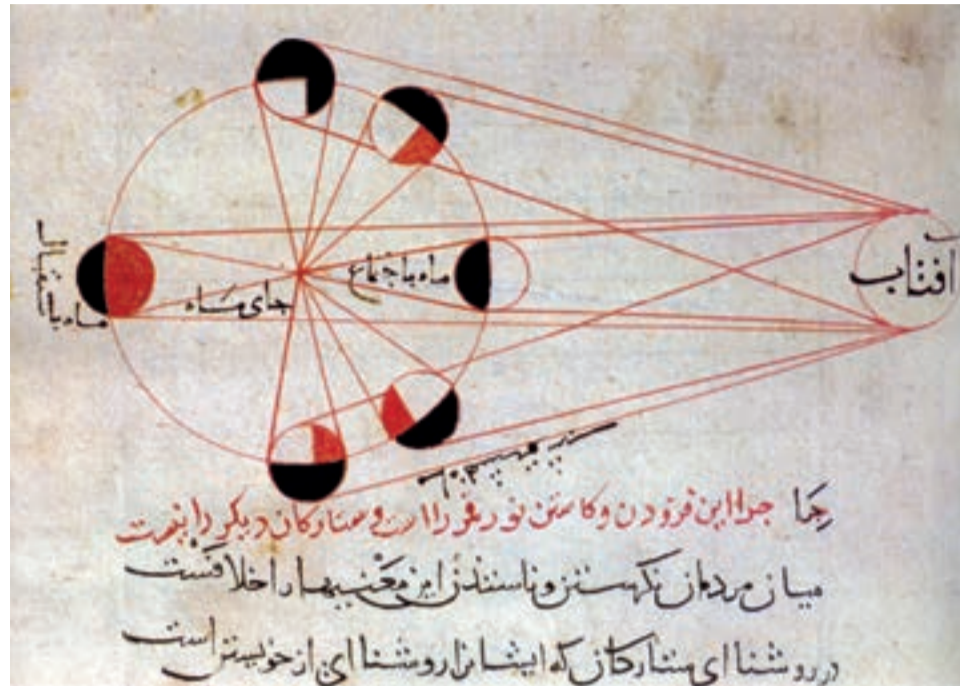 افتاب
ماه باجتماع
جای ماه
ماه باستقبال
جرا این فزودن وکاستن نور قمر را است و ستارکان دیکر را نیست
میان مردمان نکرستن این معنیها را خلافست
در روشنای ستارکان که ایشانرا روشنای از خویشتن است